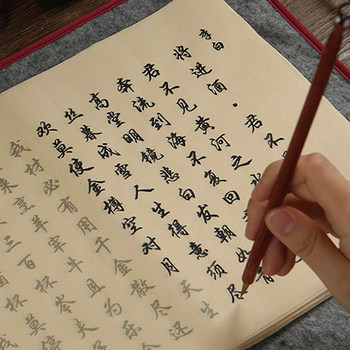 李白
将进酒·君不
君不见黄河之
奔流到海不复回
高堂明镜悲白发朝如青
丝暮成雪人生得意须尽
欢莫使金樽空对月天生
我材必有用千金散尽还
来烹羊宰牛且为乐
三百杯岑夫
杯莫停